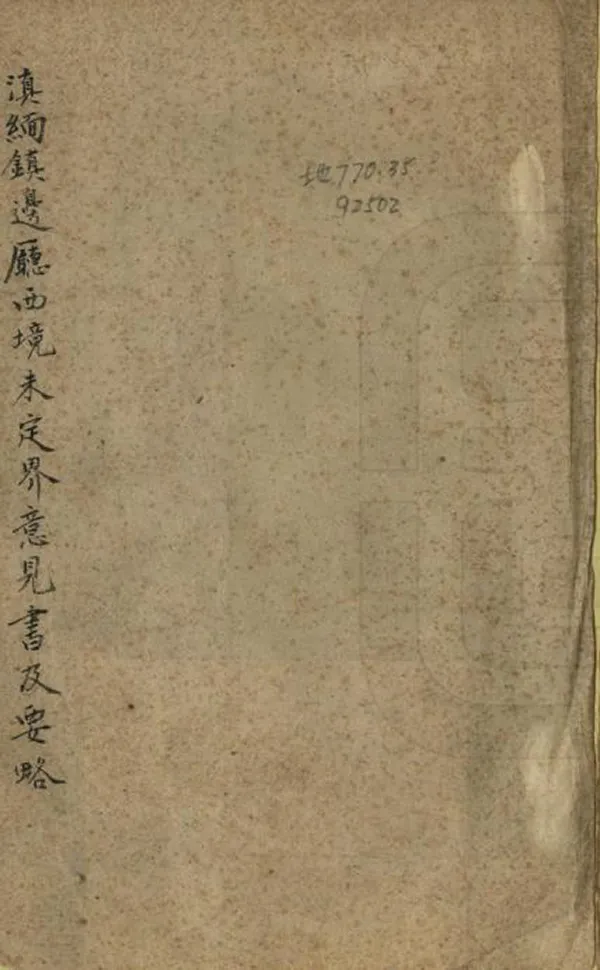 滇緬鎮邊廳西境未定界意見書及要略
地770.35
92502